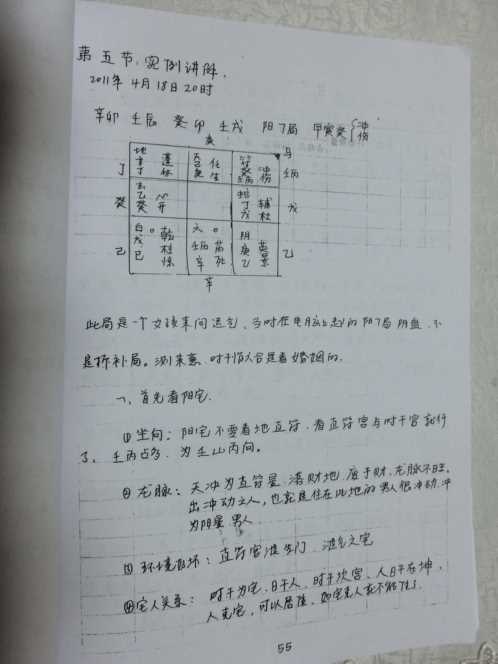 第五节、实例讲解。
2011年4月18日20时
辛卯 壬辰 癸卯 壬戌 阳7局 甲寅癸 冲 伤
庚
地 蓬 任 符 冲 马
丁 丁 休 庚 生 伤 壬丙
玄
癸 乙 癸 开 丁 辅 戊 杜 戊
白 六 阴
己 戊 己 柱 惊 壬丙 芮 辛 死 庚 乙 英 景 乙
辛
此局是一个女孩来问运气，当时在电脑上起的阳7局阴盘，不
是拆补局。测来意，时干落六合是看婚姻的。
一、首先看阳宅。
①坐向：阳宅不要看地直符，看直符宫与时干宫就行
了。壬丙占多，为壬山丙向。
②龙脉：天冲为直符星，落财地，应于财，龙脉不旺，
出冲动之人，也就是住在此地的男人很冲动，冲
为阳星男人
③环境 ：直符宫 生门
④宅人关系：时干为宅，日干人，时干坎宫，人日干在坤，
人克宅，可以居住，如宅克人就不能住了。
55